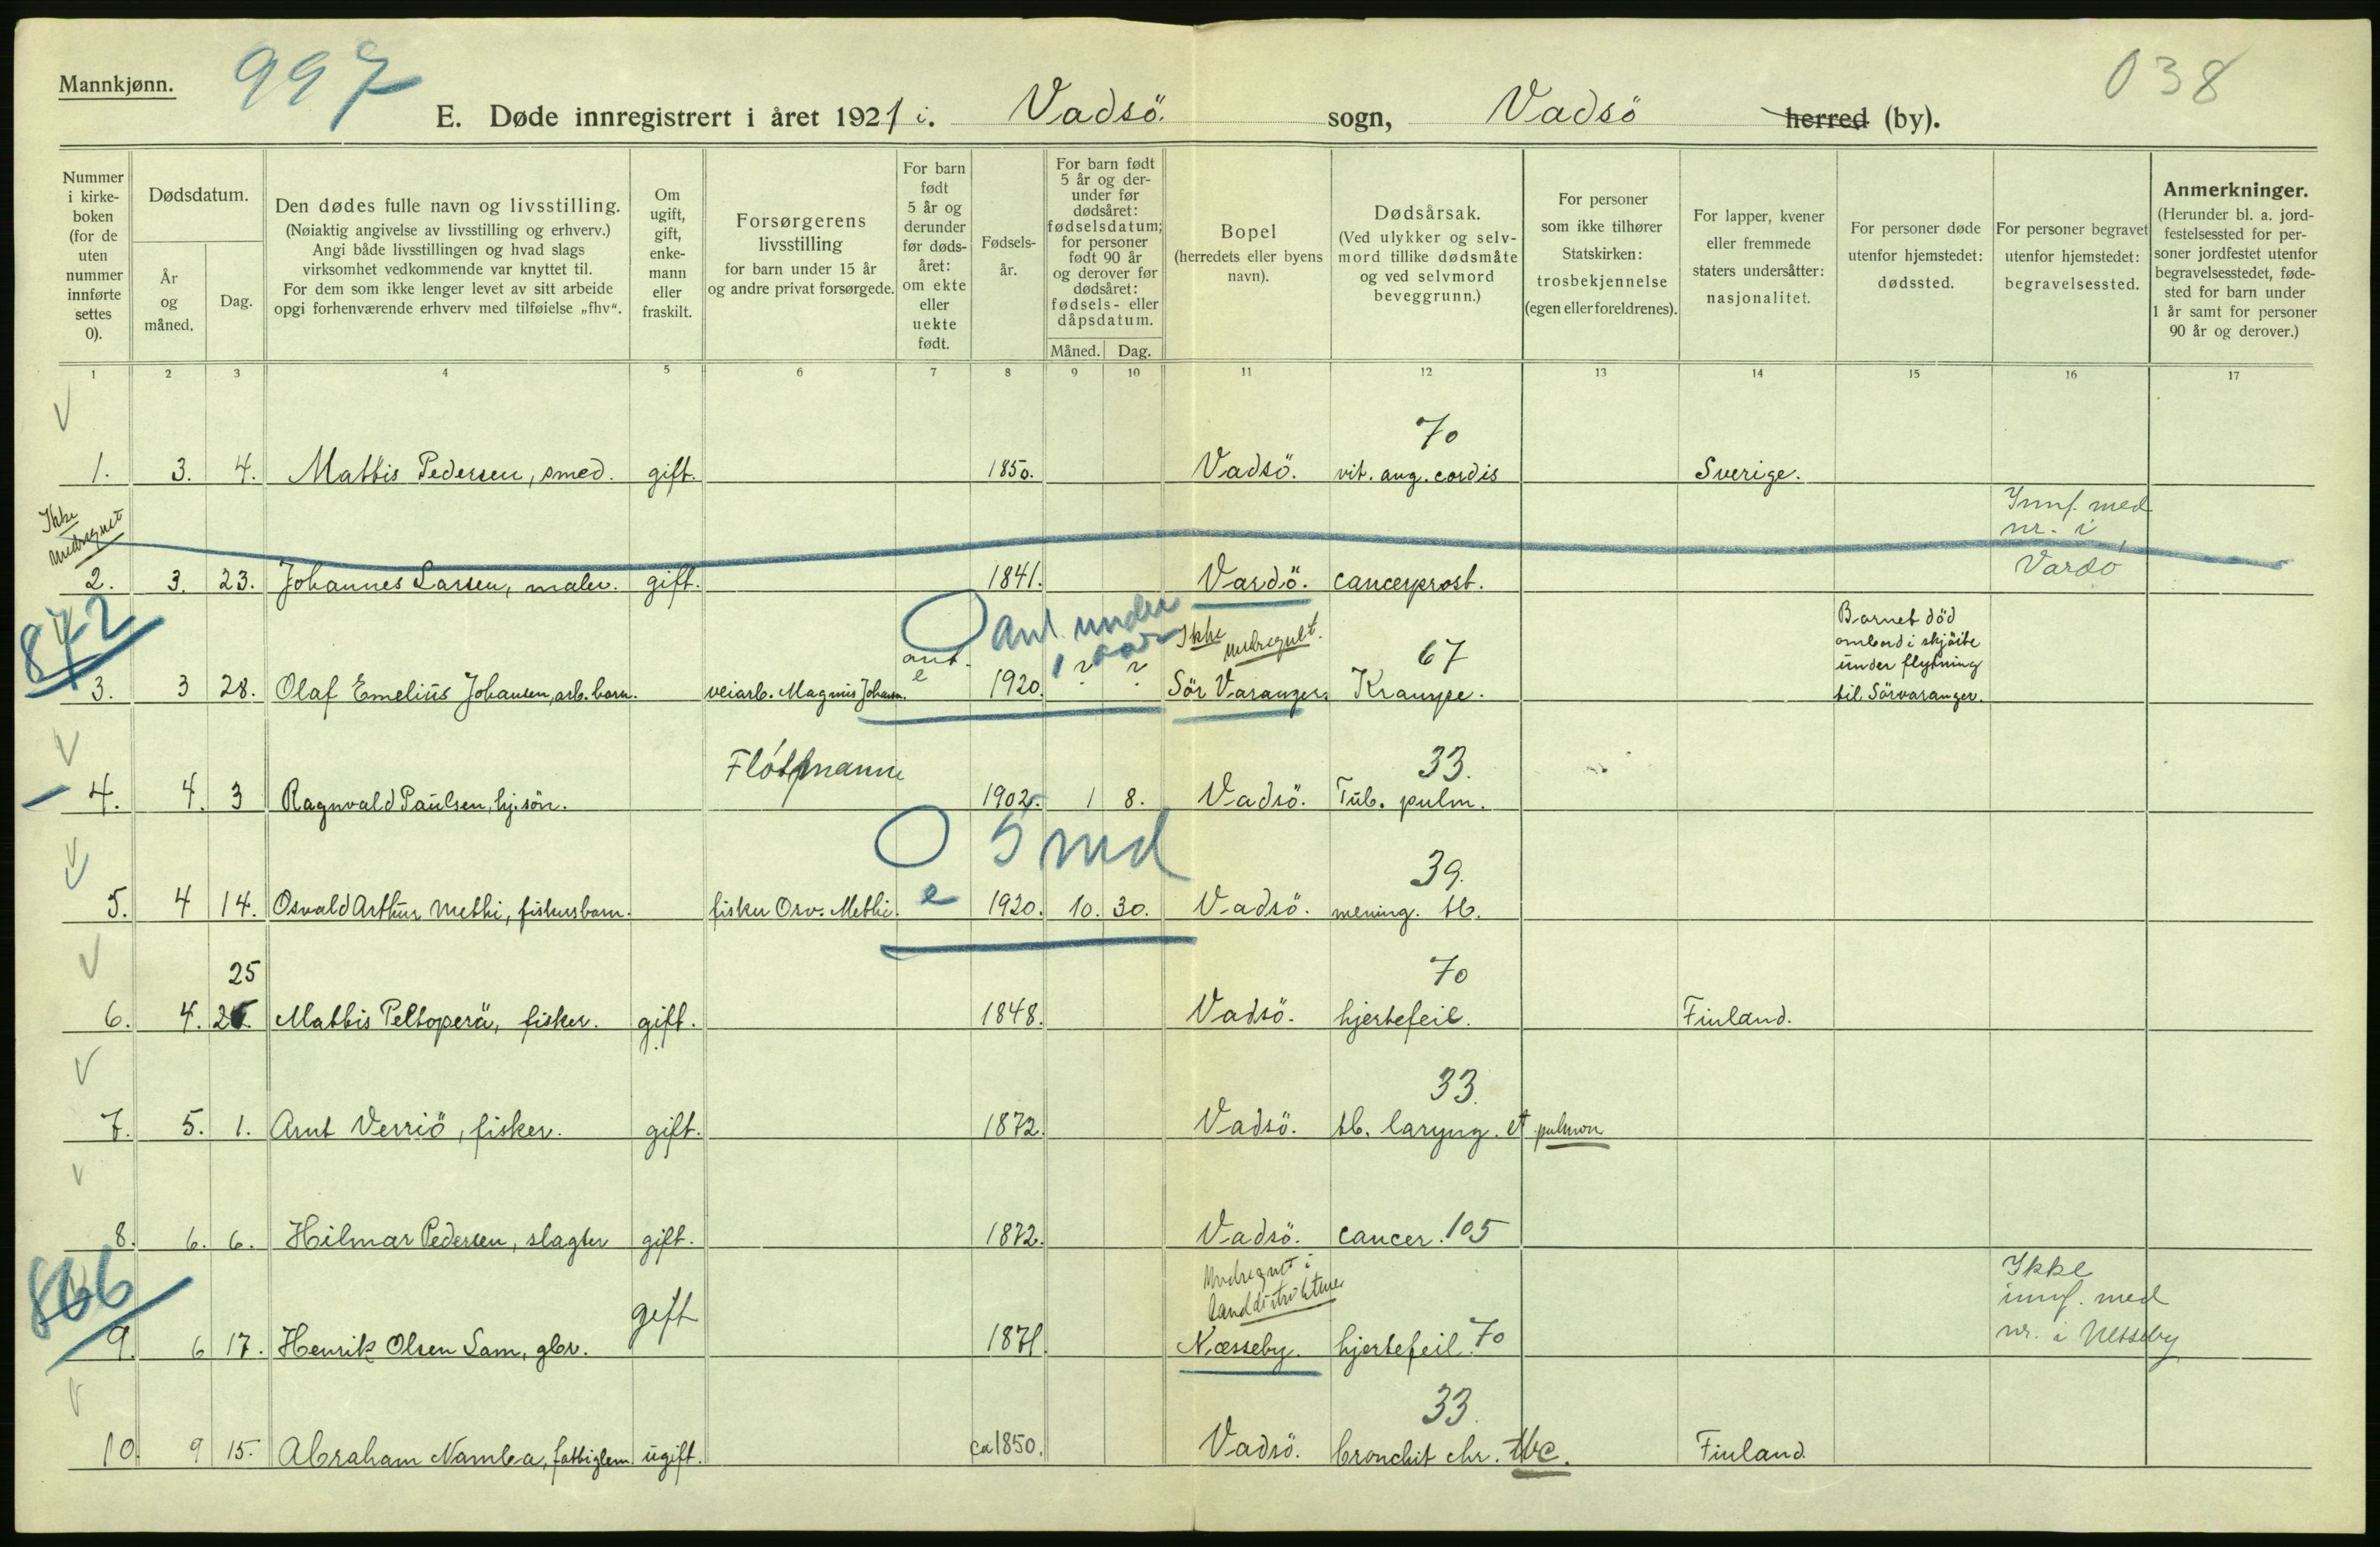 Mannkjønn.
997
038
E. Døde innregistrert i året 1921 i. Vadsö. sogn, Vadsö herred (by).
Nummer i kirkeboken (for de uten nummer innførte settes 0).
Dødsdatum.
År og måned.
Dag.
Den dødes fulle navn og livsstilling.
(Nøiaktig angivelse av livsstilling og erhverv.)
Angi både livsstillingen og hvad slags
virksomhet vedkommende var knyttet til.
For dem som ikke lenger levet av sitt arbeide
opgi forhenværende erhverv med tilføielse „fhv“.
Om ugift, gift, enkemann eller fraskilt.
Forsørgerens livsstilling
for barn under 15 år
og andre privat forsørgede.
For barn født 5 år og derunder før dødsåret: om ekte eller uekte født.
Fødselsår.
For barn født 5 år og derunder før dødsåret: fødselsdatum; for personer født 90 år og derover før dødsåret: fødsels- eller dåpsdatum.
Måned. Dag.
Bopel
(herredets eller byens navn).
Dødsårsak.
(Ved ulykker og selvmord tillike dødsmåte og ved selvmord beveggrunn.)
For personer som ikke tilhører Statskirken: trosbekjennelse (egen eller foreldrenes).
For lapper, kvener eller fremmede staters undersåtter: nasjonalitet.
For personer døde utenfor hjemstedet: dødssted.
For personer begravet utenfor hjemstedet: begravelsessted.
Anmerkninger.
(Herunder bl. a. jordfestelsessted for personer jordfestet utenfor begravelsesstedet, fødested for barn under 1 år samt for personer 90 år og derover.)
1 2 3 4 5 6 7 8 9 10 11 12 13 14 15 16 17
70
1. 3. 4. Mathis Pedersen, smed. gift. 1850. Vadsö. vit. aug. cordis Sverige.
Ikke medregnet
Innf. med nr. i Vardö
2. 3. 23. Johannes Larsen, maler. gift. 1841. Vardö. cancerprost.
872
ant. under 1 aar
Ikke medregnet.
67
Barnet död
ombord i skjöite
under flytning
til Sörvaranger.
ant.
3. 3 28. Olaf Emelius Johansen, arb. barn. veiarb. Magnus Johans. e 1920. ? ? Sör Varanger. Krampe.
Flótmann
33.
4. 4. 3 Ragnvald Paulsen, hj. sön. 1902. 1 8. Vadsö. Tub. pulm.
5 md
39.
5. 4 14. Osvald Arthur Methi, fiskersbarn. fisker Osv. Methi. e 1920. 10. 30. Vadsö. mening. tb.
25
70
6. 4. 25. Mathis Peltoperä, fisker. gift. 1848. Vadsö. hjertefeil. Finland.
33.
7. 5. 1. Arnt Verriö, fisker. gift. 1872. Vadsö. tb. laryng. et pulmon
8. 6. 6. Hilmar Pedersen, slagter gift. 1872. Vadsö. cancer. 105
866
Medregnet i landdistriktene
Ikke innf. med nr. i Nesseby
9. 6 17. Henrik Olsen Sam, gbr. gift 1871. Næsseby. hjertefeil. 70
33.
10. 9 15. Abraham Namba, fattiglem ugift. ca 1850. Vadsö. bronchit chr. tbc. Finland.